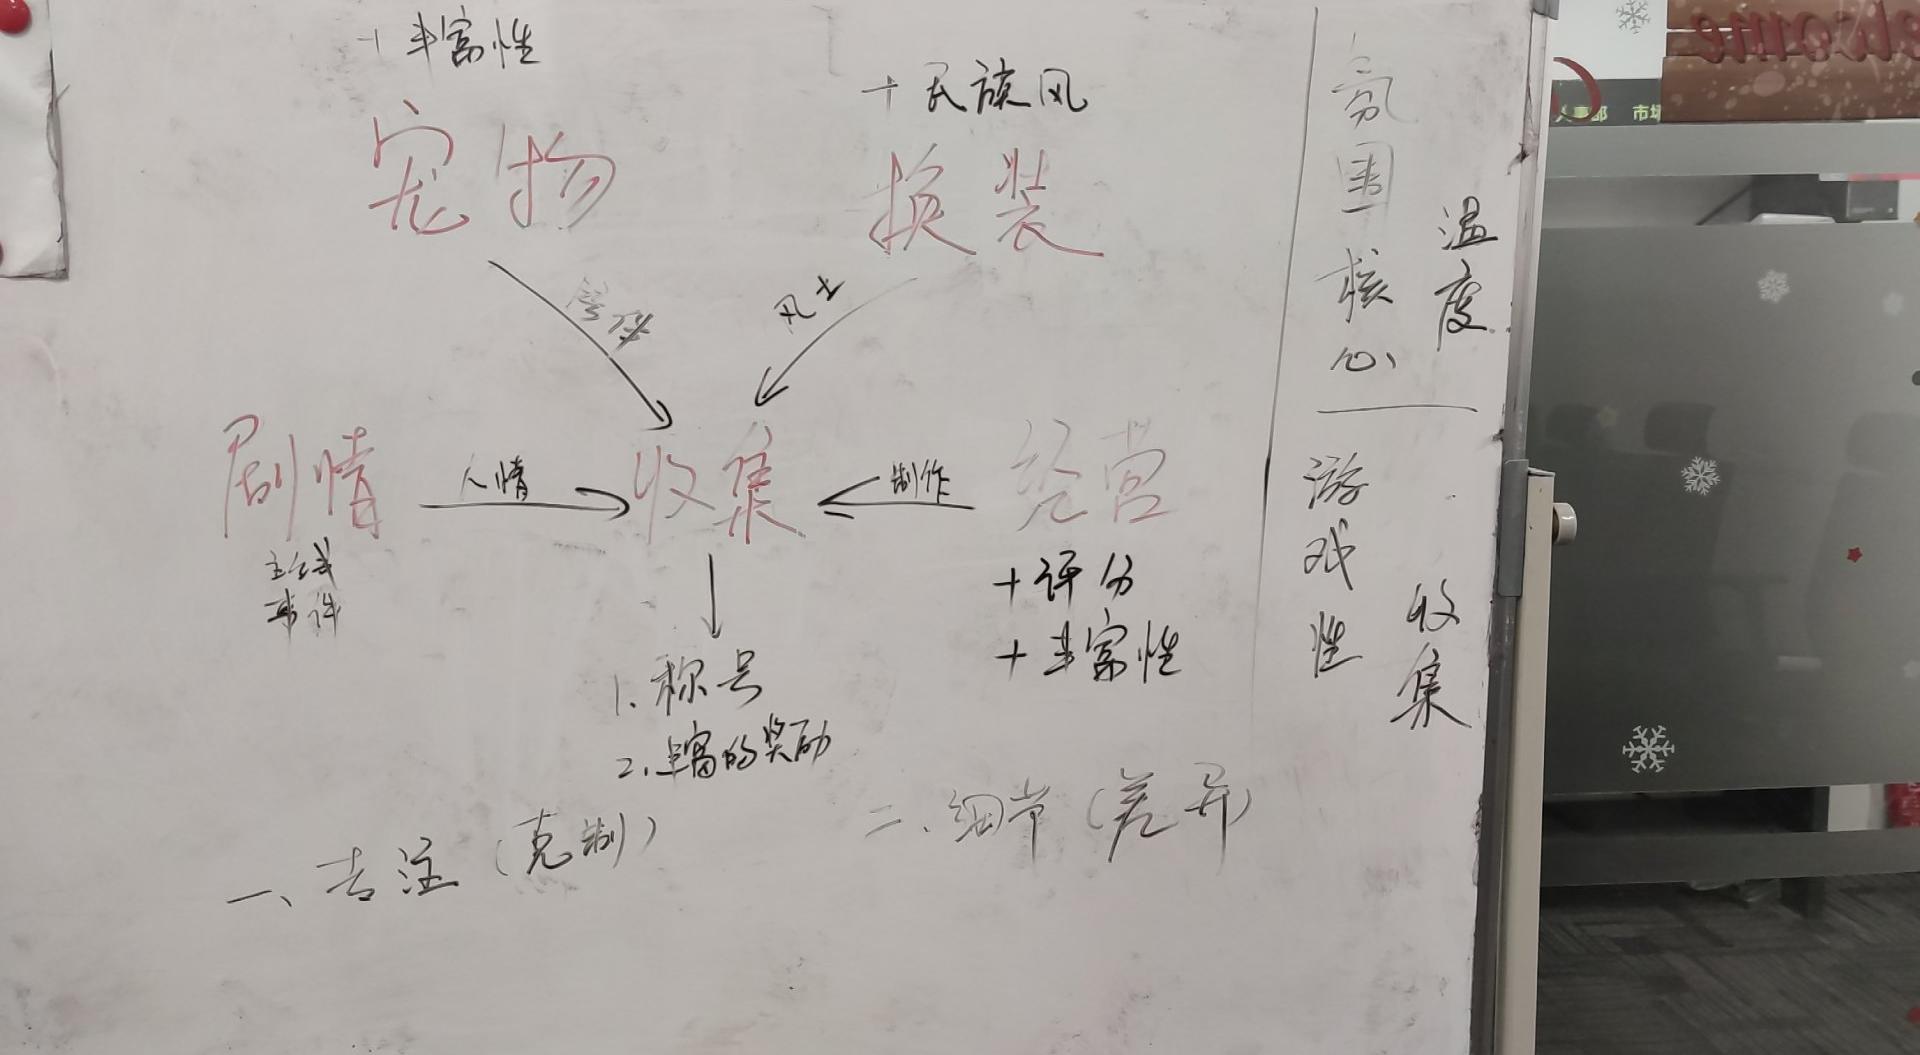 +丰富性
宠物
+民族风
换装
风土
剧情
人情
收集
制作
经营
主线
事件
+评分
+丰富性
1.称号
2.丰富的奖励
一、专注(克制)
二、细节(差异)
氛围核心
温度
游戏性
收集
人事部 市场